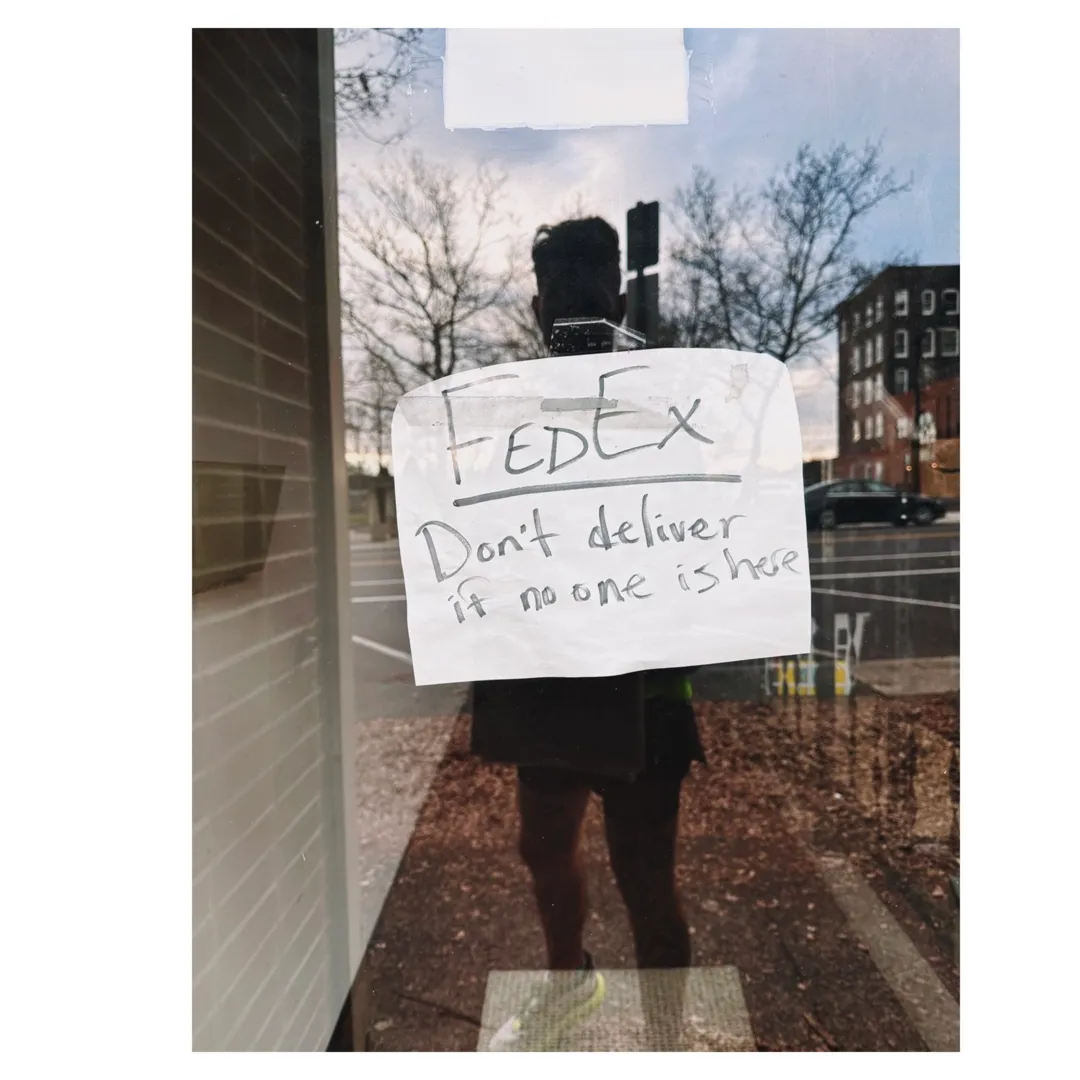 FEDEX
Don't deliver
if no one is here